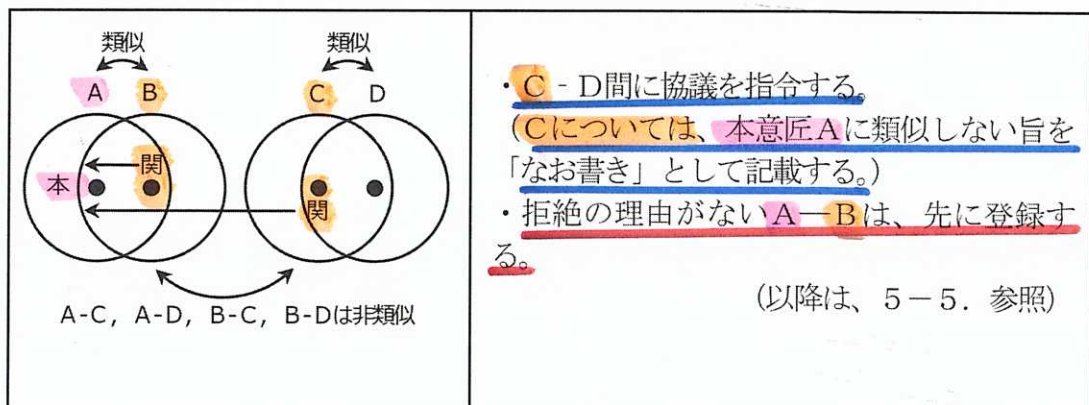 類似 類似
A B C D
関
本
関
A-C, A-D, B-C, B-Dは非類似
・C－D間に協議を指令する。
(Cについては、本意匠Aに類似しない旨を
「なお書き」として記載する。)
・拒絶の理由がないA―Bは、先に登録す
る。
(以降は、５－５．参照)